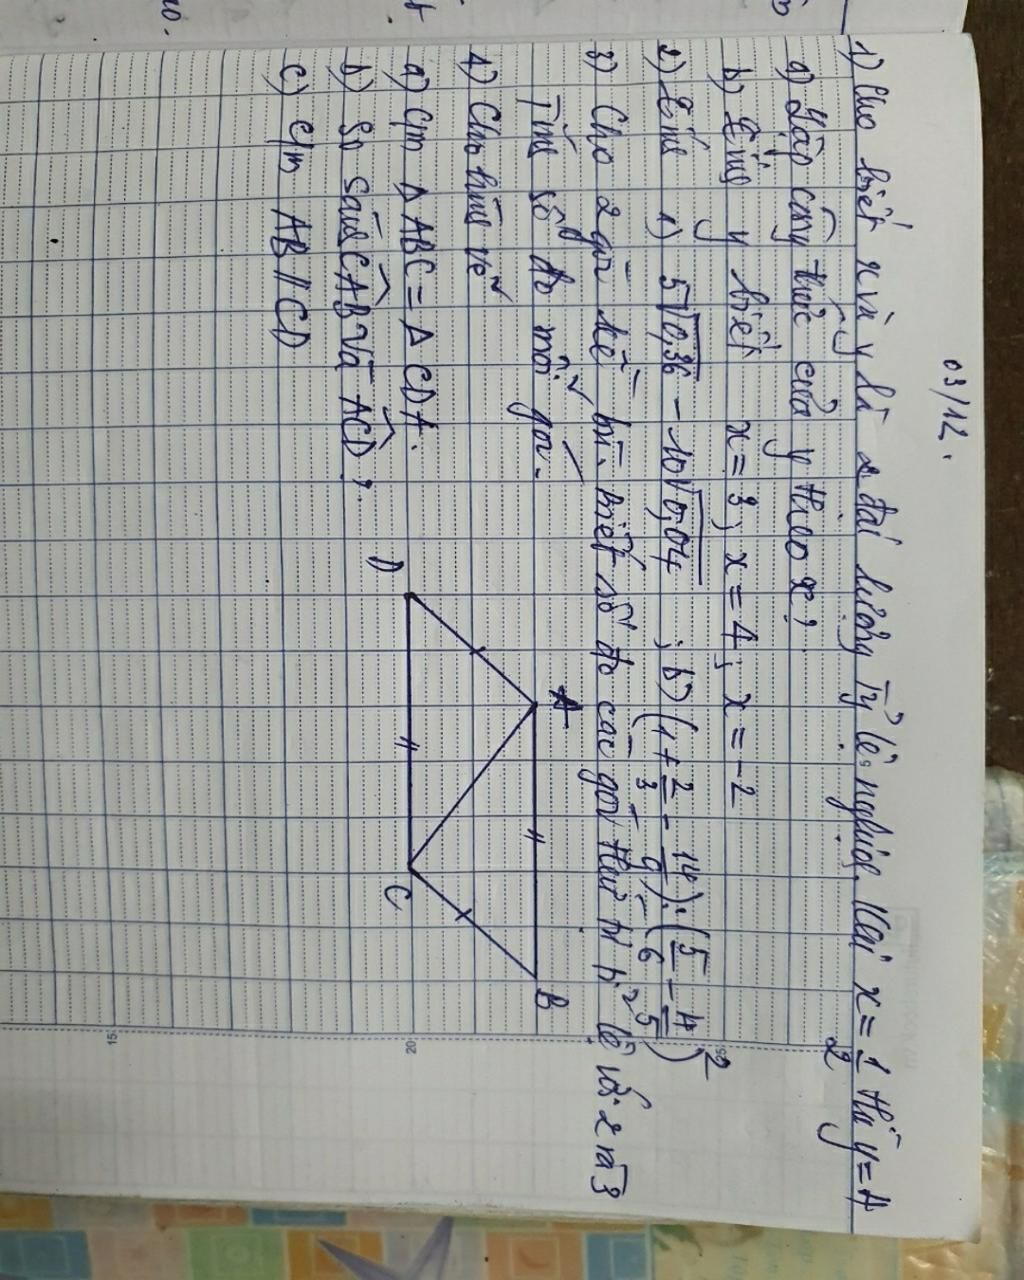 03/12.
1) Cho biết x và y là 2 đại lượng tỷ lệ nghịch. Khi x = 1/2 thì y = 4
a) Lập công thức của y theo x?
b) Tính y biết x = 3; x = 4; x = -2
2) Tính a) 5√0,36 - 10√0,04 ; b) (1 + 2/3 - 14/9) . (5/6 - 4/5)²
3) Cho 2 góc kề bù. biết số đo các góc đó tỉ lệ với 2 và 3
Tính số đo mỗi góc.
4) Cho hình vẽ
a) C/m Δ ABC = Δ CDA.
b) So sánh CAB và ACD?
c) C/m AB // CD
A
B
D
C
25
20
15